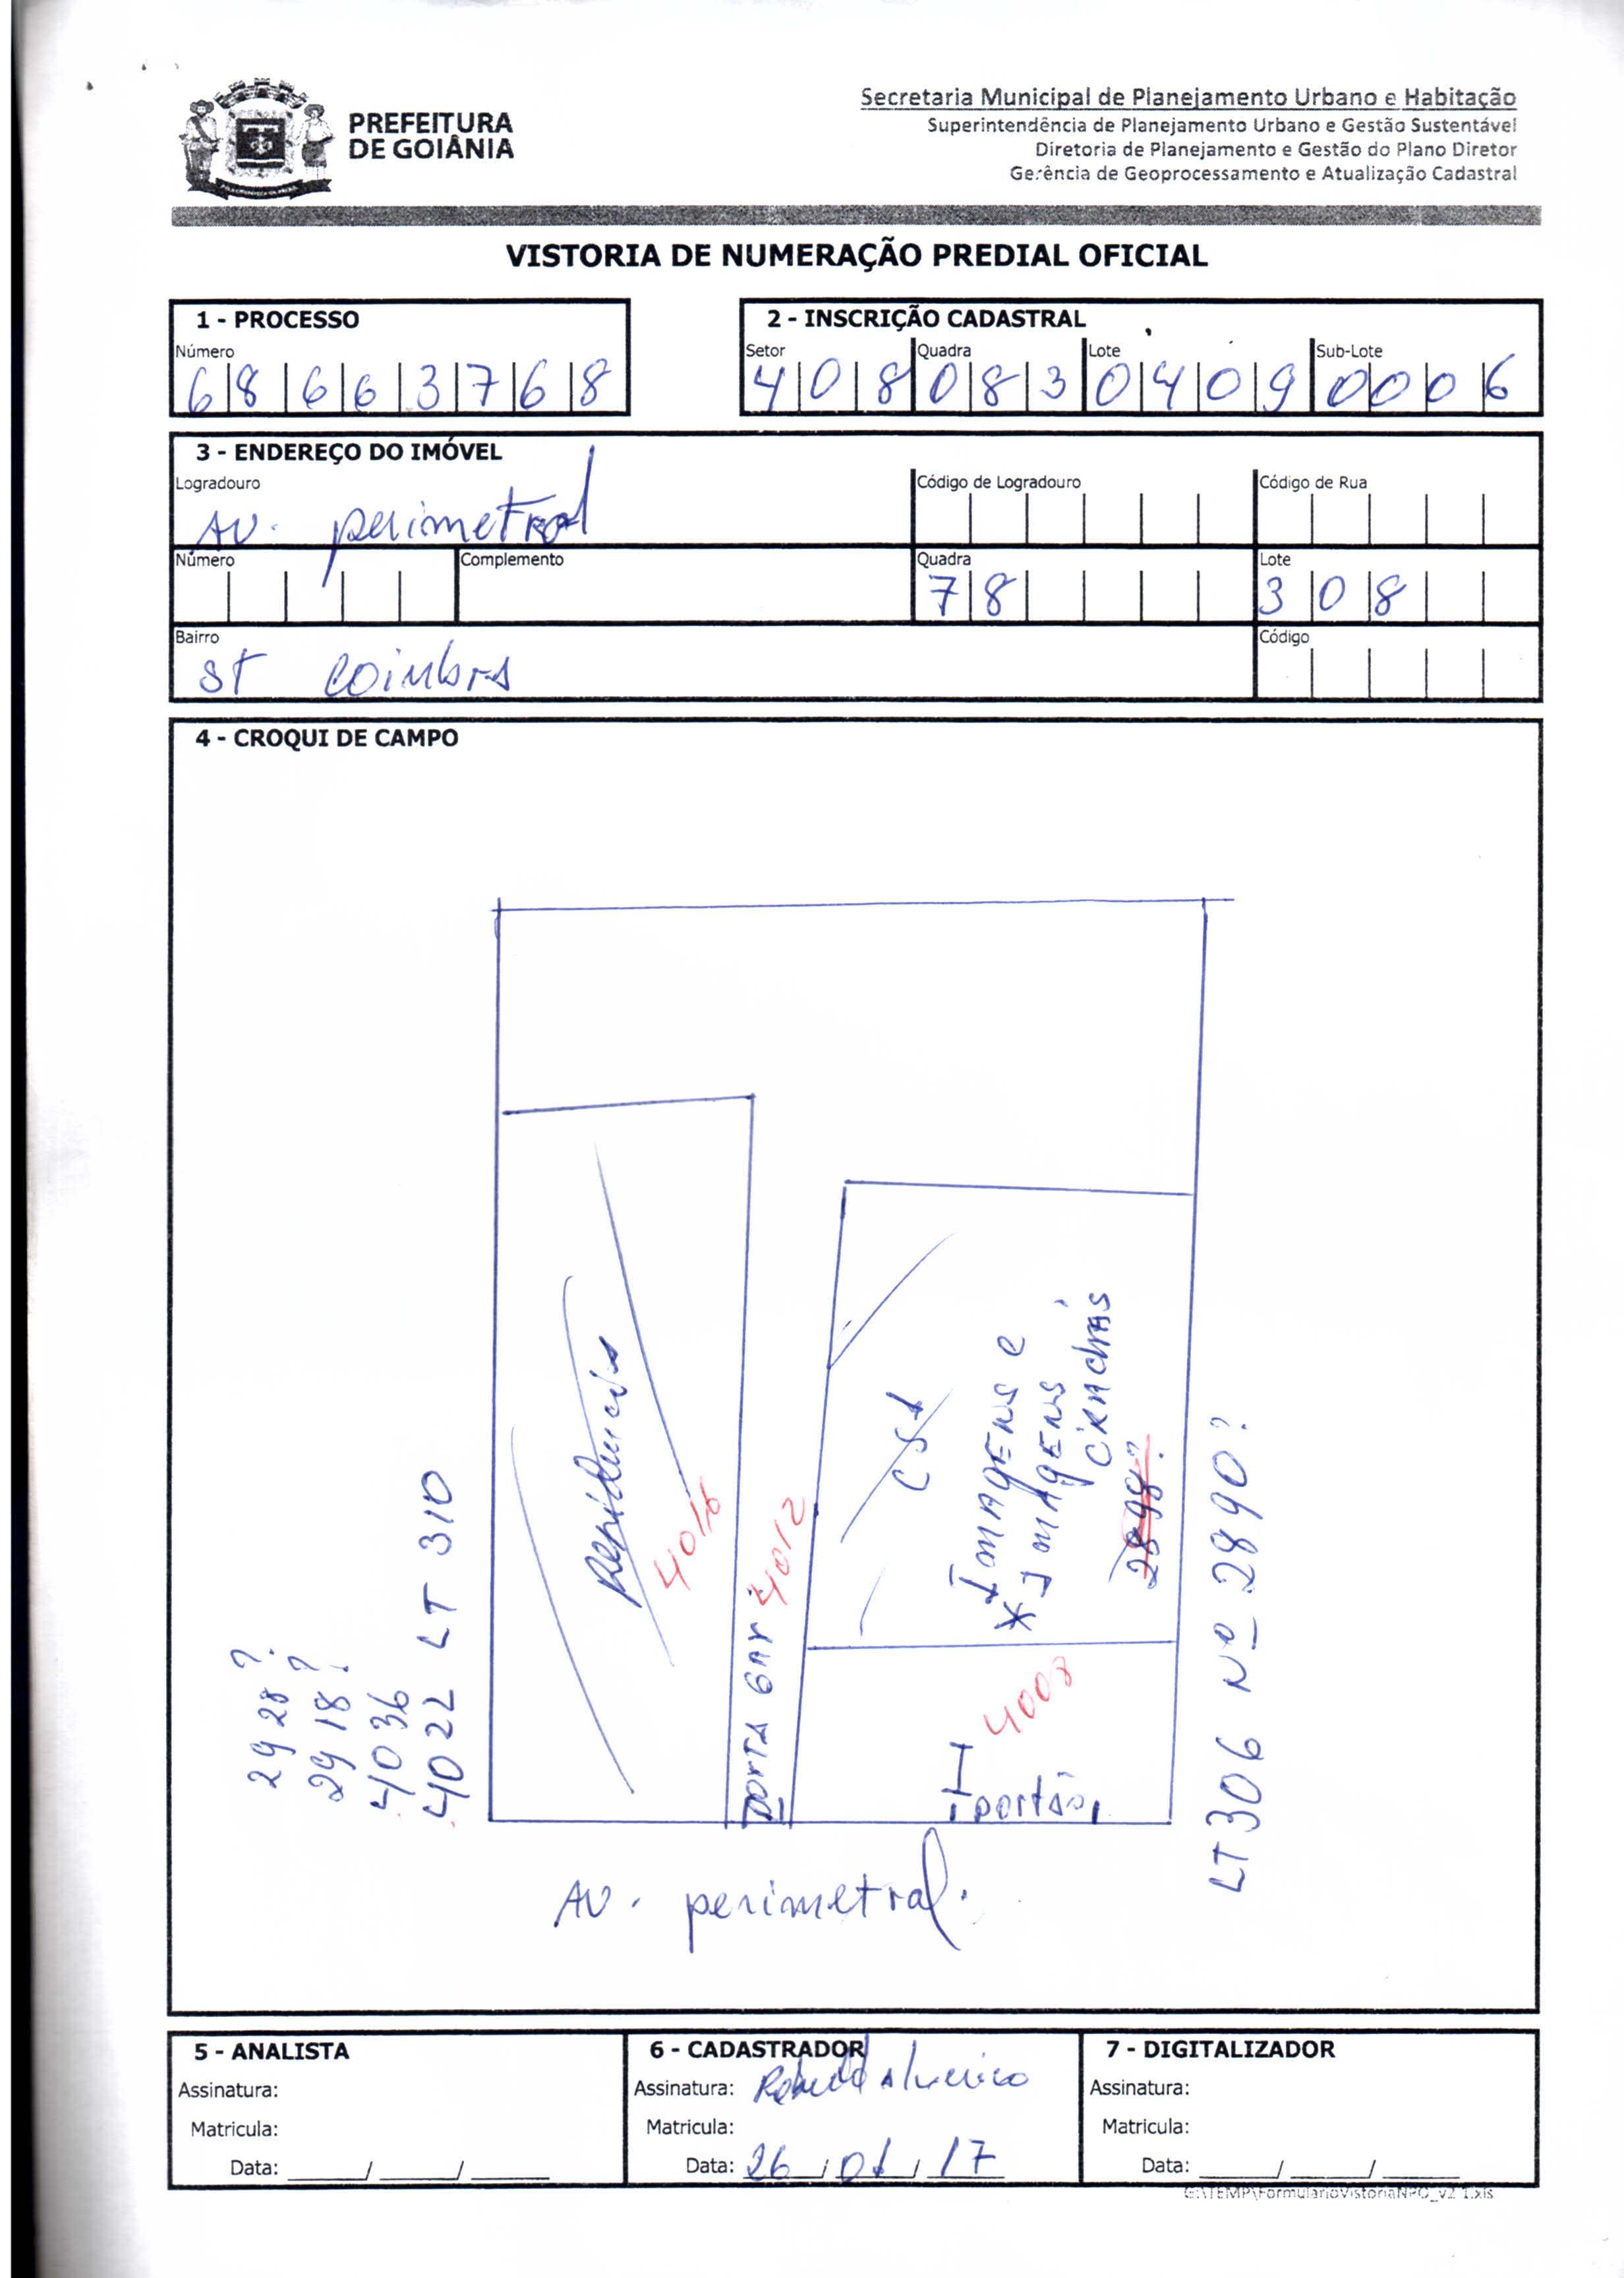 PREFEITURA
DE GOIÂNIA
Secretaria Municipal de Planejamento Urbano e Habitação
Superintendência de Planejamento Urbano e Gestão Sustentável
Diretoria de Planejamento e Gestão do Plano Diretor
Gerência de Geoprocessamento e Atualização Cadastral
VISTORIA DE NUMERAÇÃO PREDIAL OFICIAL
1 - PROCESSO
Número
68663768
2 - INSCRIÇÃO CADASTRAL
Setor Quadra Lote Sub-Lote
408 083 0409 0006
3 - ENDEREÇO DO IMÓVEL
Logradouro
Código de Logradouro
Código de Rua
AV. perimetral
Número
Complemento
Quadra
78
Lote
308
Bairro
ST Coimbra
Código
4 - CROQUI DE CAMPO
2928?
2918?
4036
4022 LT 310
Residencia
4016
PORTA GAR
4012
CSL
Imagens e
* Imagens
Crachás
2898?
4008
portão
LT 306 Nº 2890?
AV. perimetral.
5 - ANALISTA
Assinatura:
Matricula:
Data: ____/____/____
6 - CADASTRADOR
Assinatura:
Matricula:
Data: 26/01/17
7 - DIGITALIZADOR
Assinatura:
Matricula:
Data: ____/____/____
G:\TEMP\FormularioVistoriaNPO_v2 1.xls